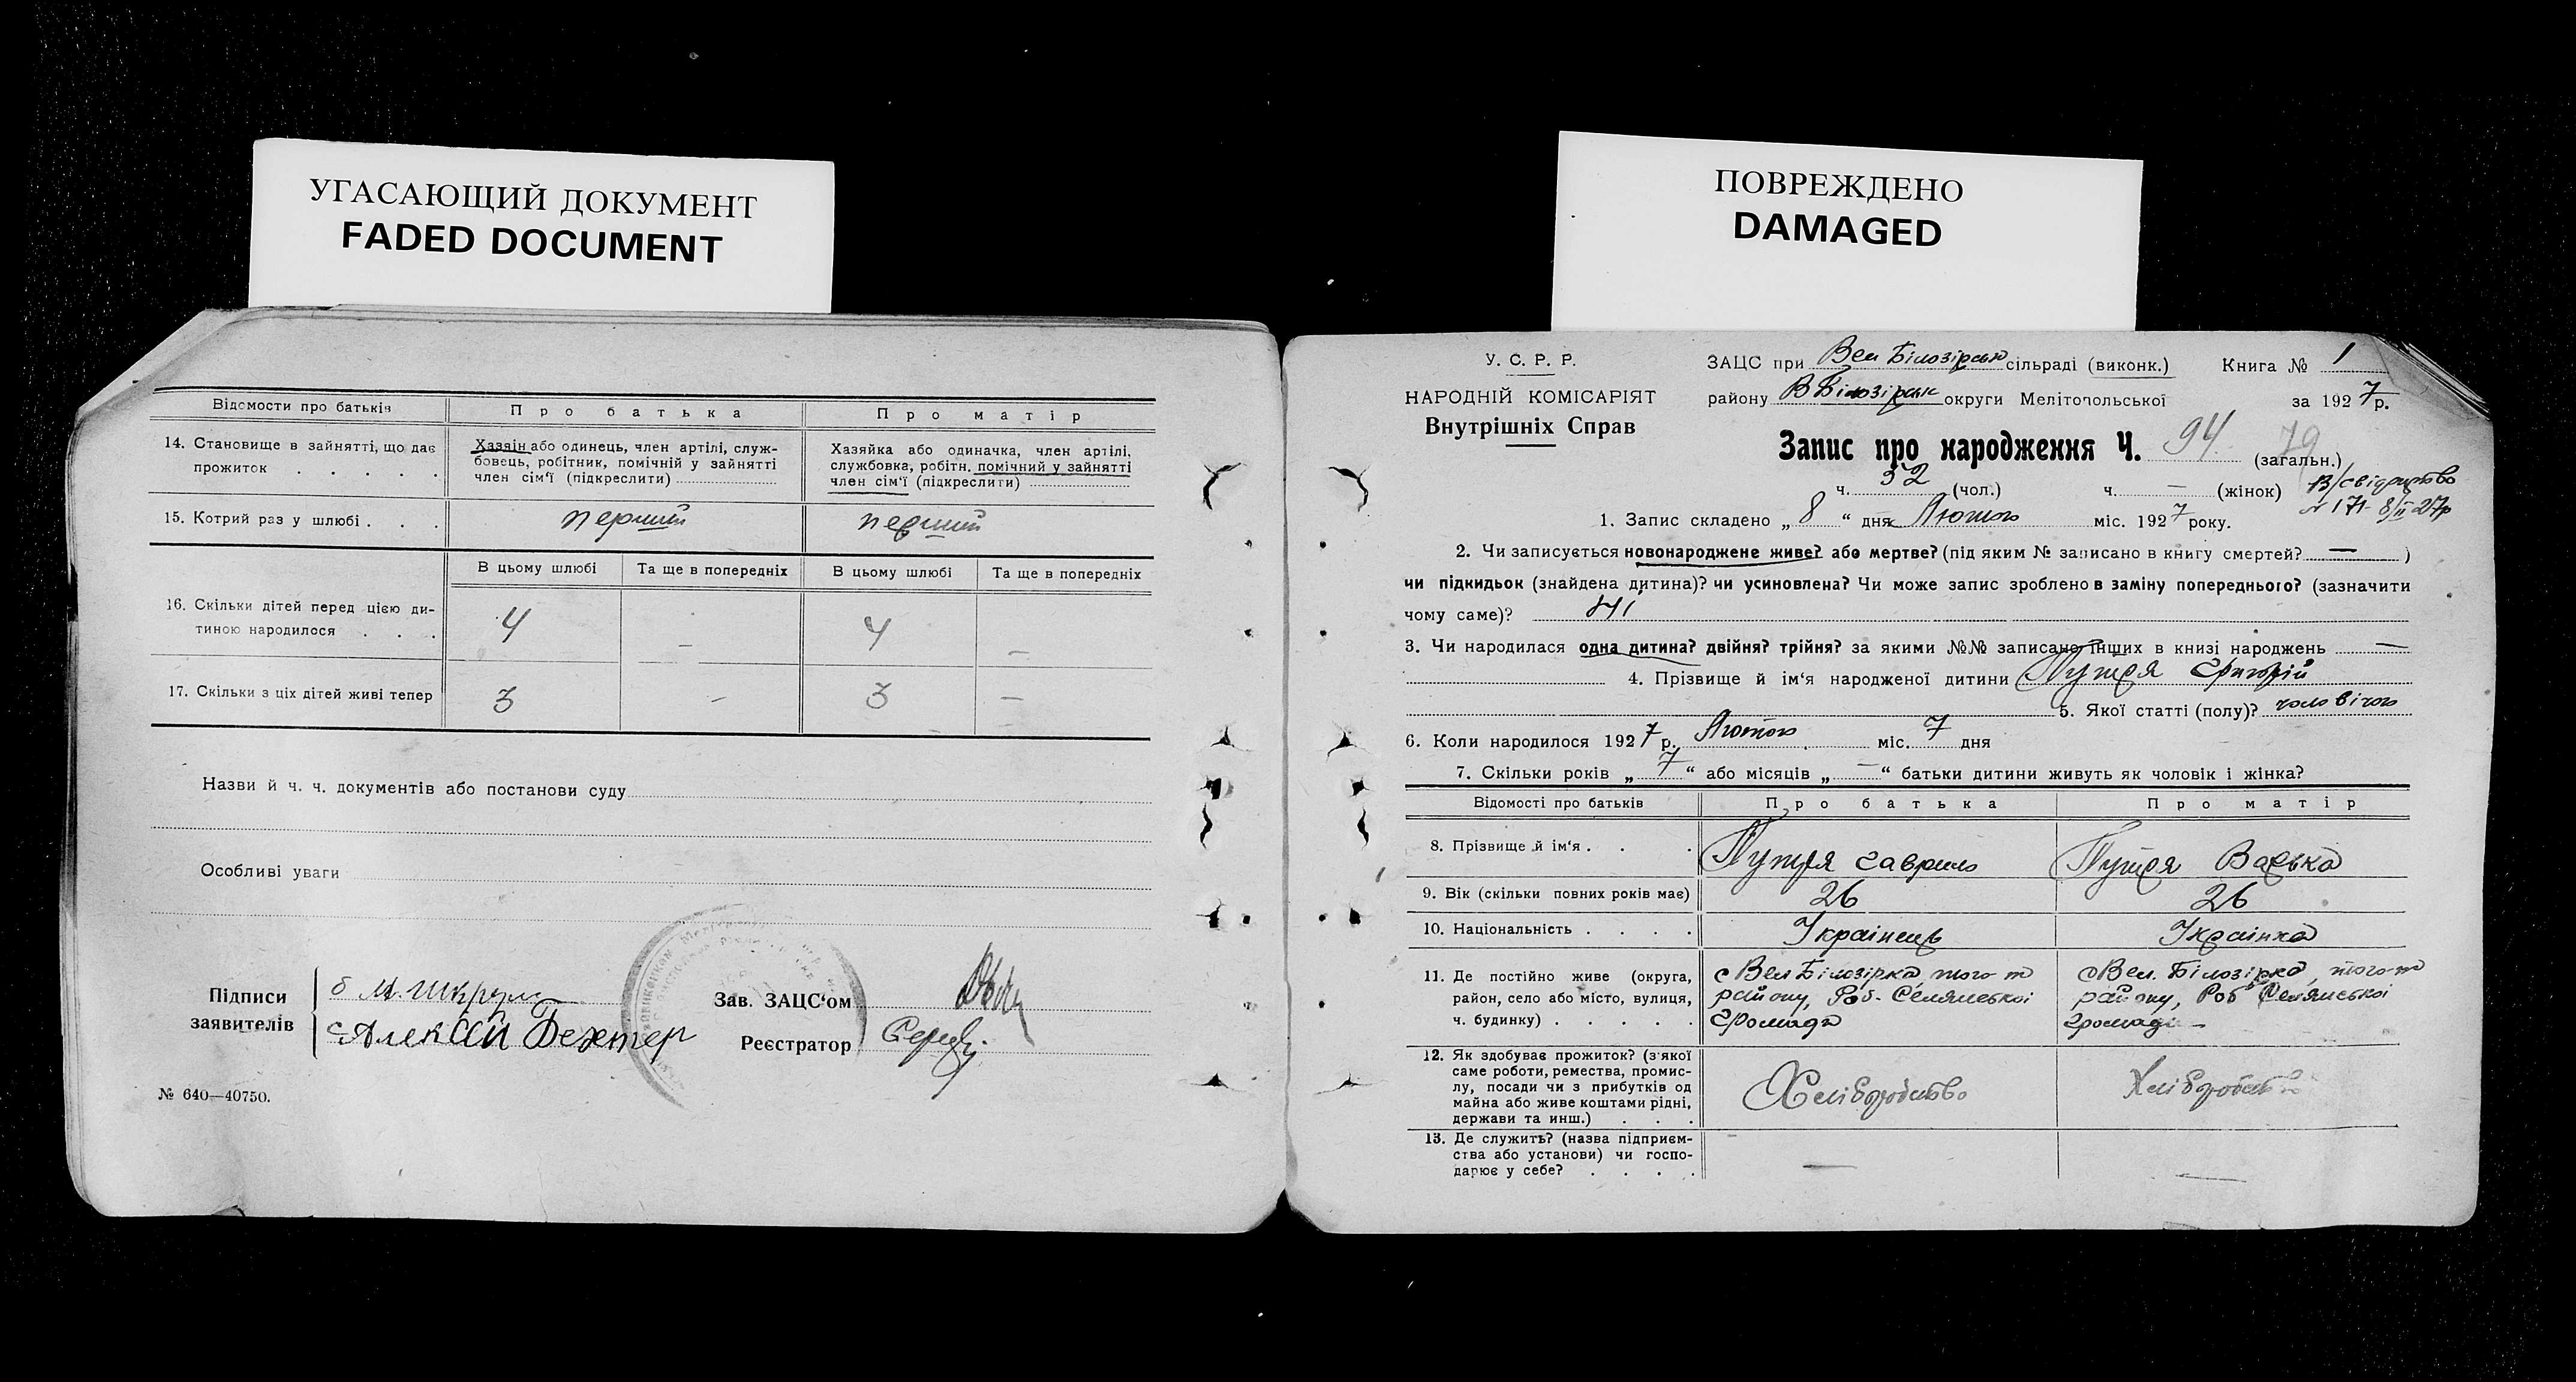 УГАСАЮЩИЙ ДОКУМЕНТ
FADED DOCUMENT
Відомости про батьків
Про батька
Про матір
14. Становище в зайнятті, що дає
прожиток . . . . .
Хазяїн або одинець, член артілі, служ-
бовець, робітник, помічній у зайнятті
член сім'ї (підкреслити)
Хазяйка або одиначка, член артілі,
службовка, робітн. помічний у зайнятті
член сім'ї (підкреслити)
15. Котрий раз у шлюбі . . .
перший
перший
В цьому шлюбі
Та ще в попередніх
В цьому шлюбі
Та ще в попередніх
16. Скільки дітей перед цією ди-
тиною народилося . . .
4
—
4
—
17. Скільки з ціх дітей живі тепер
3
—
3
—
Назви й ч. ч. документів або постанови суду
Особливі уваги
Підписи
заявителів
Алексій Бехтер
Зав. ЗАЦС'ом
Реєстратор
№ 640—40750.
ПОВРЕЖДЕНО
DAMAGED
У. С. Р. Р.
НАРОДНІЙ КОМІСАРІЯТ
Внутрішніх Справ
ЗАЦС при Вел Білозірськ сільраді (виконк.) Книга № 1
району В Білозірськ округи Мелітопольської за 1927 р.
Запис про народження Ч. 94 79
(загальн.)
ч. 52 (чол.) ч. — (жінок)
В/свідоцтво
N 171 8/II 27р
1. Запис складено „ 8 “ дня Лютого міс. 1927 року.
2. Чи записується новонароджене живе? або мертве? (під яким № записано в книгу смертей? — )
чи підкидьок (знайдена дитина)? чи усиновлена? Чи може запис зроблено в заміну попереднього? (зазначити
чому саме)? Ні
3. Чи народилася одна дитина? двійня? трійня? за якими №№ записано інших в книзі народжень —
4. Прізвище й ім'я народженої дитини Путря Григорій
5. Якої статті (полу)? чоловічого
6. Коли народилося 1927 р. Лютого міс. 7 дня
7. Скільки років „ 7 “ або місяців „ — “ батьки дитини живуть як чоловік і жінка?
Відомості про батьків
Про батька
Про матір
8. Прізвище й ім'я . . .
Путря Гаврило
Путря Варька
9. Вік (скільки повних років має)
26
26
10. Національність . . . .
Українець
Українка
11. Де постійно живе (округа,
район, село або місто, вулиця,
ч. будинку) . . . . .
с Вел Білозірка, того-ж
району, Роб-Селянської
Громади
с Вел. Білозірка, того-ж
району, Роб Селянської
громади —
12. Як здобуває прожиток? (з якої
саме роботи, ремества, промис-
лу, посади чи з прибутків од
майна або живе коштами рідні,
держави та инш.) . . .
Хліборобство
Хліборобство
13. Де служить? (назва підприєм-
ства або установи) чи госпо-
дарює у себе? . . . .
—
—